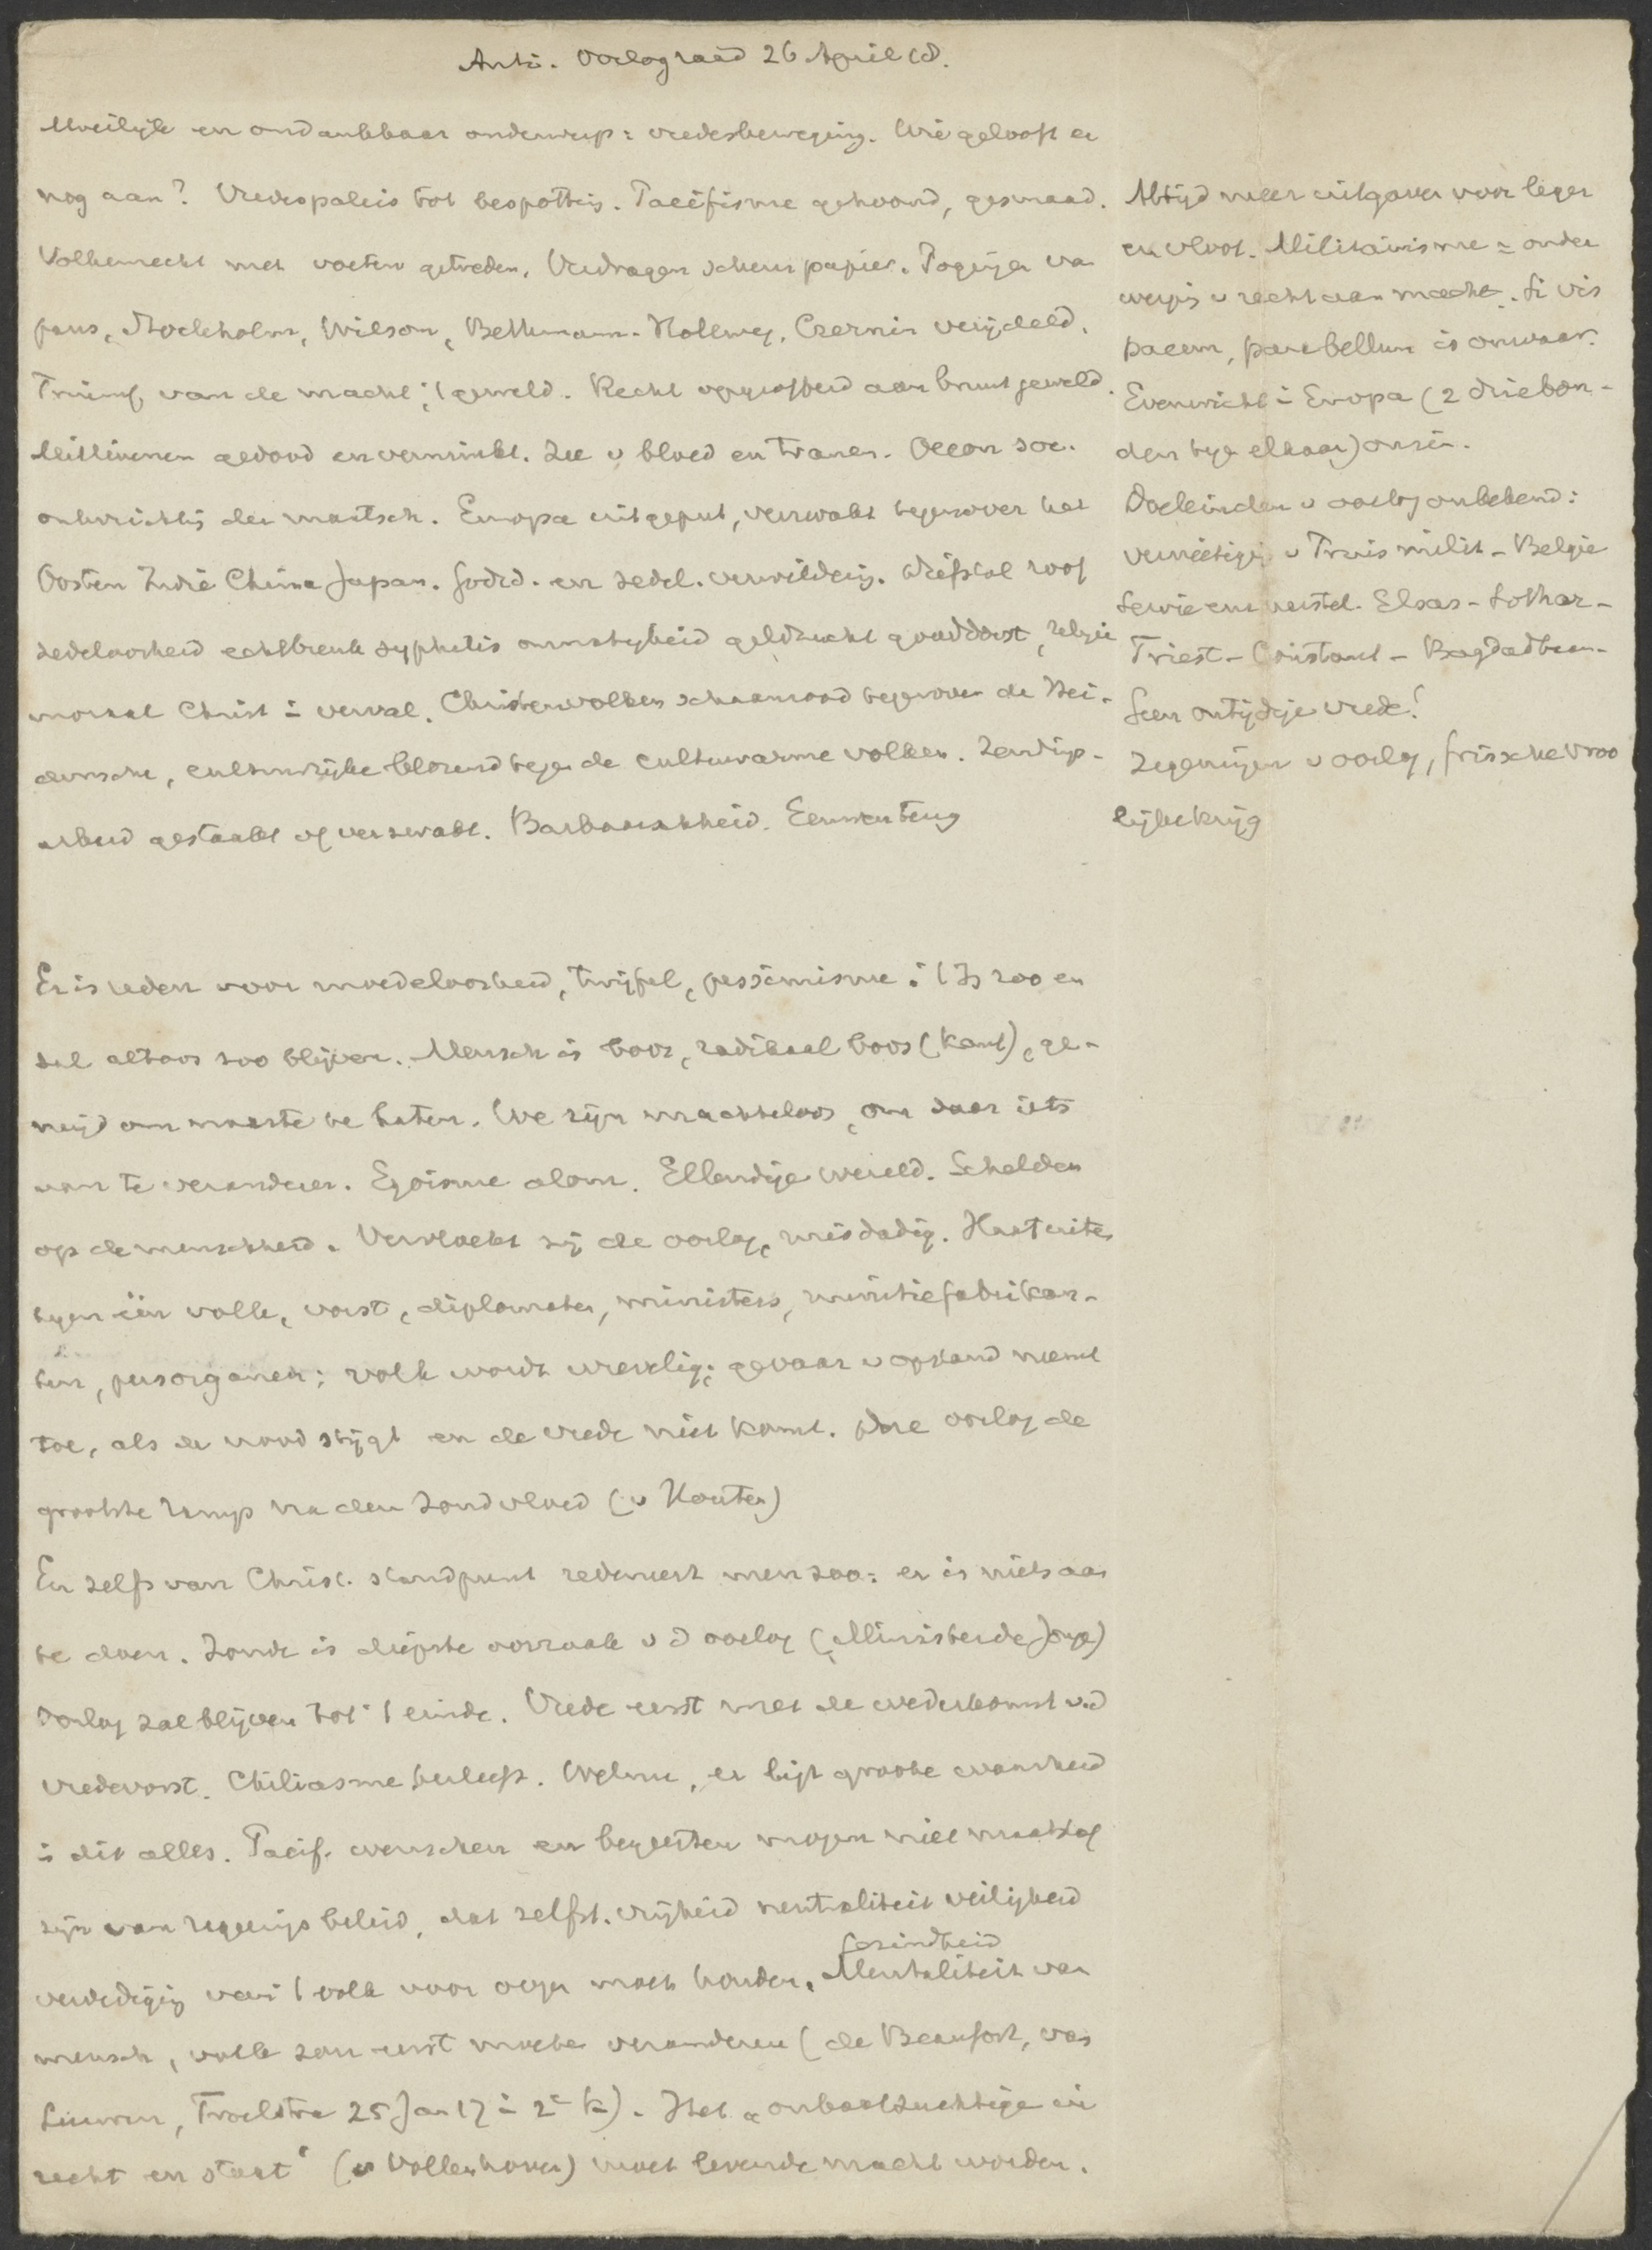 Anti. Oorlograad 26 April 18.
Moeilijk en ondankbaar onderwerp: vredesbeweging. Wie gelooft er
nog aan? Vredespaleis tot bespotting. Pacifisme gehoond, gesmaad.
Volkenrecht met voeten getreden. Verdragen scheurpapier. Pogingen van
paus, Stockholm, Wilson, Bethmann-Hollweg, Czernin verijdeld.
Triumf van de macht, 't geweld. Recht opgeofferd aan bruut geweld.
Millioenen gedood en verminkt. Zee v bloed en tranen. Oecon soc.
ontwrichting der maatsch. Europa uitgeput, verzwakt tegenover het
Oosten Indië China Japan. Godsd. en zedel. verwildering. Diefstal roof
zedeloosheid echtbreuk syphilis onmatigheid geldzucht gouddorst, religie
moraal Christ in verval. Christenvolken schaamrood tegenover de Hei-
densche, cultuurrijke blozend tegen de cultuurarme volken. Zendings-
arbeid gestaakt of verzwakt. Barbaarschheid. Eeuwen terug
Er is reden voor moedeloosheid, twijfel, pessimisme: 't Is zoo en
zal altoos zoo blijven. Mensch is boos, radikaal boos (Kant), ge-
neigd om naaste te haten. We zijn machteloos, om daar iets
van te veranderen. Egoisme alom. Ellendige wereld. Schelden
op de menschheid. Vervloekt zij de oorlog, misdadig. Haat uiten
tegen één volk, vorst, diplomaten, ministers, munitiefabrikan-
ten, persorganen; volk wordt wrevelig; gevaar v opstand neemt
toe, als de nood stijgt en de vrede niet komt. Deze oorlog de
grootste ramp na den Zondvloed (v Houten)
En zelfs van Christ. standpunt redeneert men zoo: er is niets aan
te doen. Zonde is diepste oorzaak v d oorlog (Minister de Jonge)
Oorlog zal blijven tot 't einde. Vrede eerst met de wederkomst v.d
vredevorst. Chiliasme herleeft. Welnu, er ligt groote waarheid
in dit alles. Pacif. wenschen en begeerten mogen niet maatstaf
zijn van regeeringsbeleid, dat zelfst. vrijheid neutraliteit veiligheid
Gezindheid
verdediging van 't volk voor oogen moet houden. Mentaliteit van
mensch, volk zou eerst moeten veranderen (de Beaufort, van
Leeuwen, Troelstra 25 Jan 17 in 2e k). Het "onbaatzuchtige in
recht en staat" (v Vollenhoven) moet levende macht worden.
Altijd meer uitgaven voor leger
en vloot. Militairisme = onder
werping v recht aan macht. Si vis
pacem, para bellum is onwaar.
Evenwicht in Europa (2 driebon-
den tegen elkaar) onzin.
Doeleinden v oorlog onbekend:
vernietiging v Pruis milit - Belgie
Servie enz herstel. Elsas - Lothar-
Triest - Constant - Bagdadbaan.
Geen ontijdige vrede!
Zegeningen v oorlog, frissche vroo
lijke krijg